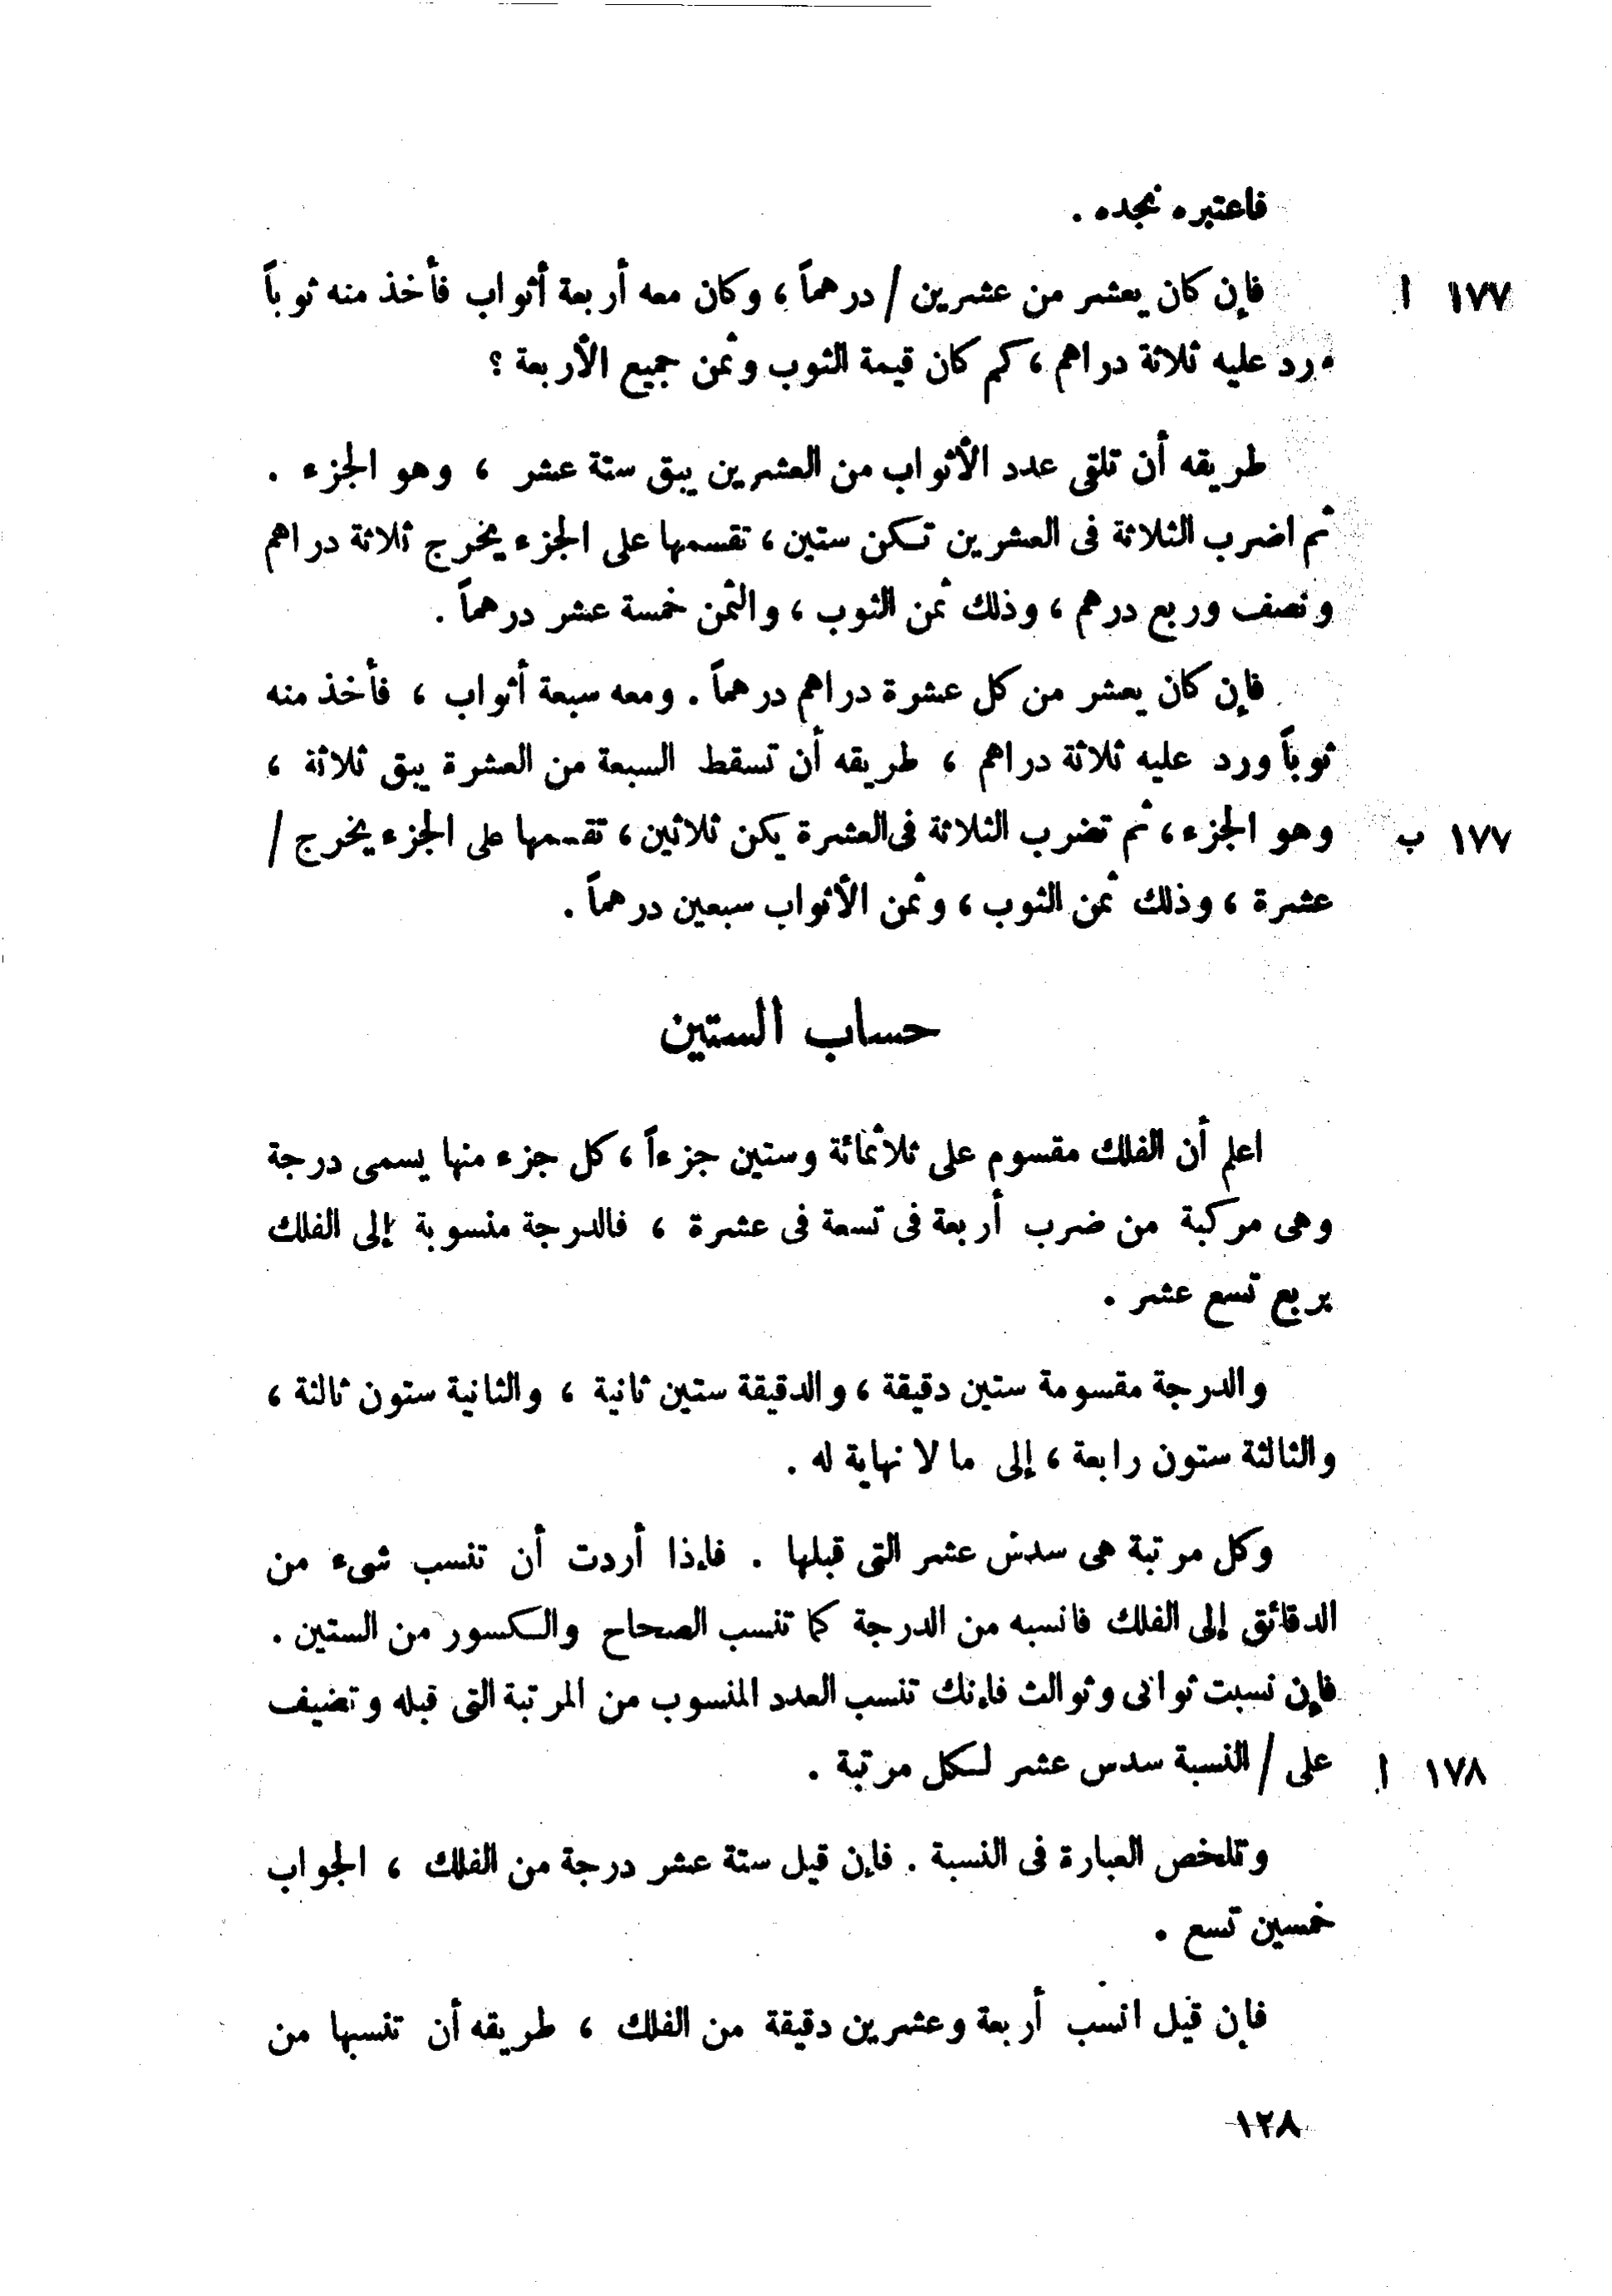 فاعتبره تجده .
١٧٧ ا فإن كان يعشر من عشرين / درهماً ، وكان معه أربعة أثواب فأخذ منه ثوباً
ورد عليه ثلاثة دراهم ، كم كان قيمة الثوب وثمن جميع الأربعة ؟
طريقه أن تلقى عدد الأثواب من العشرين يبق ستة عشر ، وهو الجزء .
ثم اضرب الثلاثة فى العشرين تكن ستين ، تقسمها على الجزء يخرج ثلاثة دراهم
ونصف وربع درهم ، وذلك ثمن الثوب ، والثمن خمسة عشر درهماً .
فإن كان يعشر من كل عشرة دراهم درهماً . ومعه سبعة أثواب ، فأخذ منه
ثوباً ورد عليه ثلاثة دراهم ، طريقه أن تسقط السبعة من العشرة يبق ثلاثة ،
١٧٧ ب وهو الجزء ، ثم تضرب الثلاثة فى العشرة يكن ثلاثين ، تقسمها على الجزء يخرج /
عشرة ، وذلك ثمن الثوب ، وثمن الأثواب سبعين درهماً .
حساب الستين
اعلم أن الفلك مقسوم على ثلاثمائة وستين جزءاً ، كل جزء منها يسمى درجة
وهى مركبة من ضرب أربعة فى تسعة فى عشرة ، فالدرجة منسوبة إلى الفلك
بربع تسع عشر .
والدرجة مقسومة ستين دقيقة ، والدقيقة ستين ثانية ، والثانية ستون ثالثة ،
والثالثة ستون رابعة ، إلى ما لا نهاية له .
وكل مرتبة هى سدس عشر التى قبلها . فإذا أردت أن تنسب شىء من
الدقائق إلى الفلك فانسبه من الدرجة كما تنسب الصحاح والكسور من الستين .
فإن نسبت ثوانى وثوالث فإنك تنسب العدد المنسوب من المرتبة التى قبله وتضيف
١٧٨ ا على / النسبة سدس عشر لكل مرتبة .
وتلخص العبارة فى النسبة . فإن قيل ستة عشر درجة من الفلك ، الجواب
خمسين تسع .
فإن قيل انسب أربعة وعشرين دقيقة من الفلك ، طريقه أن تنسبها من
١٢٨